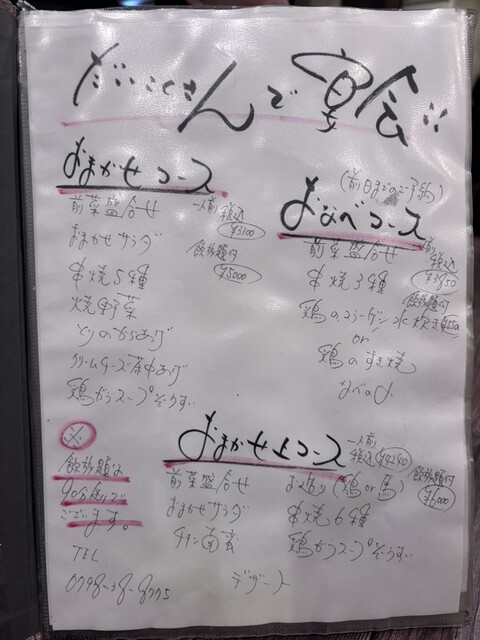 だいこくさんで宴会
おまかせコース
前菜盛合せ
おまかせサラダ
串焼5種
焼野菜
とりのからあげ
クリームチーズ茶巾あげ
鶏がらスープぞうすい
一人前 税込
¥3300
飲放題付
¥5000
(前日までのご予約)
おなべコース
前菜盛合せ
串焼3種
鶏のコラーゲン水炊き
or
鶏のすき焼
なべの〆
一人前
税込
¥3850
飲放題付
おまかせ上コース
前菜盛合せ
おまかせサラダ
チキン南蛮
お造り(鶏or馬)
串焼6種
鶏がらスープぞうすい
デザート
一人前
税込 ¥4280
飲放題付
¥6000
※
飲放題は
90分制で
ございます。
TEL
0798-38-8775